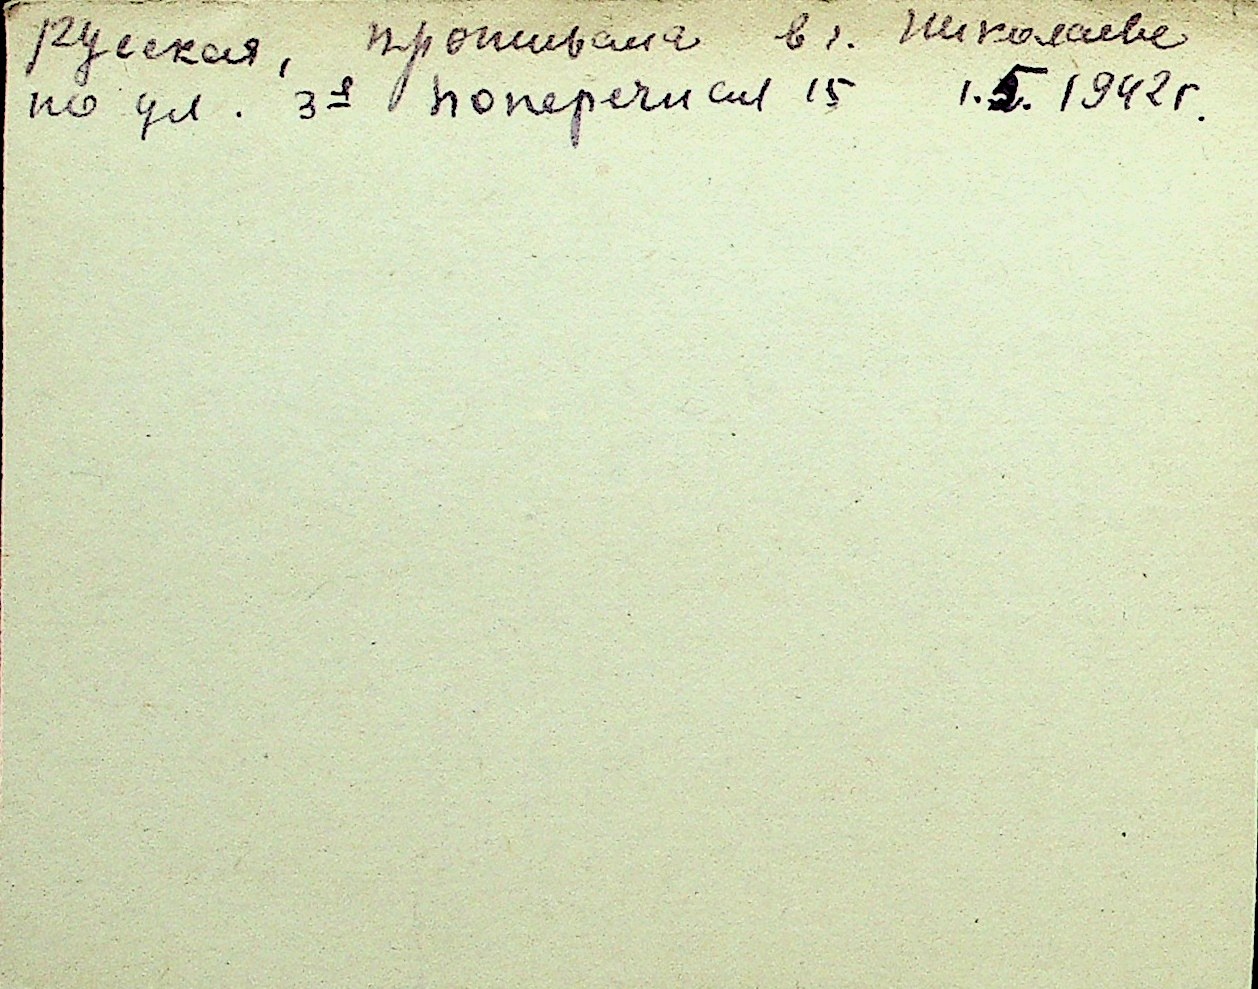 Русская, проживала в г. Николаеве
по ул. 3я Поперечная 15 1.5. 1942г.